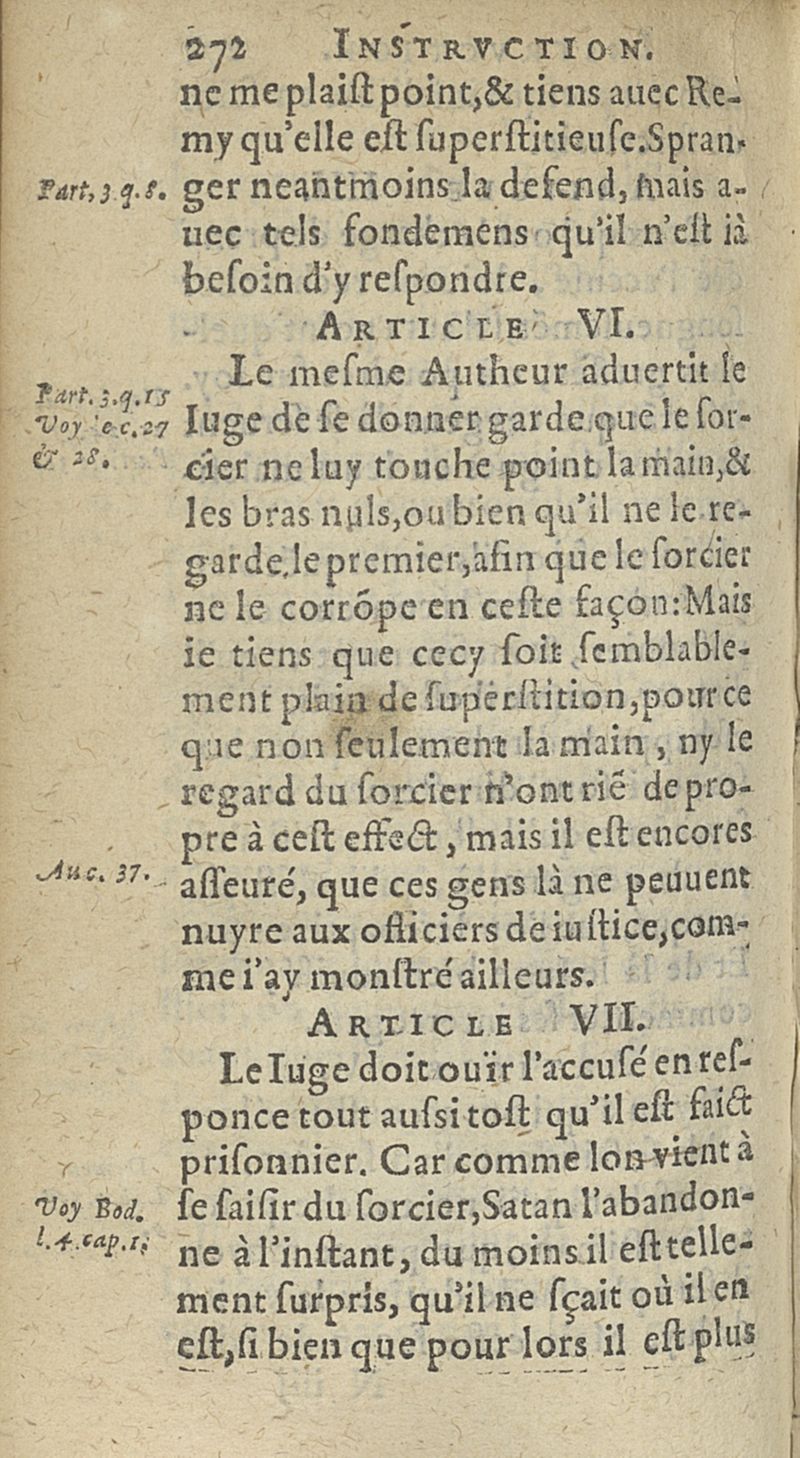 272 INSTRVCTION.
ne me plaiſt point,& tiens auec Re-
my qu'elle eſt ſuperſtitieuſe.Spran-
Part, 3 q. 8.
ger neantmoins la defend, mais a-
uec tels fondemens qu'il n'eſt ià
beſoin d'y reſpondre.
ARTICLE VI.
Le meſme Autheur aduertit le
Part. 3.q.15
Voy c.27
& 28.
Iuge de ſe donner garde que le ſor-
cier ne luy touche point la main,&
les bras nuls,ou bien qu'il ne le re-
garde le premier,afin que le ſorcier
ne le corrõpe en ceſte façon:Mais
ie tiens que cecy ſoit ſemblable-
ment plain de ſuperſtition,pour ce
que non ſeulement la main , ny le
regard du ſorcier n'ont riẽ de pro-
pre à ceſt effect , mais il eſt encores
Au c. 37.
aſſeuré, que ces gens là ne peuuent
nuyre aux officiers de iuſtice,com-
me i'ay monſtré ailleurs.
ARTICLE VII.
Le Iuge doit ouïr l'accuſé en reſ-
ponce tout auſsi toſt qu'il eſt faict
priſonnier. Car comme lon vient à
Voy Bod.
l.4.cap.1.
ſe ſaiſir du ſorcier,Satan l'abandon-
ne à l'inſtant, du moins il eſt telle-
ment ſurpris, qu'il ne ſçait où il en
eſt,ſi bien que pour lors il eſt plus